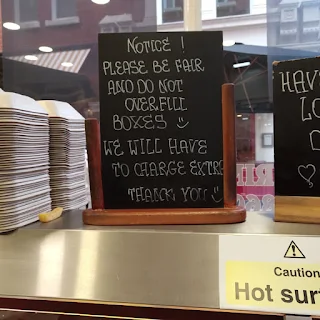 NOTICE !
PLEASE BE FAIR
AND DO NOT
OVERFILL
BOXES
WE WILL HAVE
TO CHARGE EXTRA
THANK YOU
HAVE
LO
Caution
Hot sur